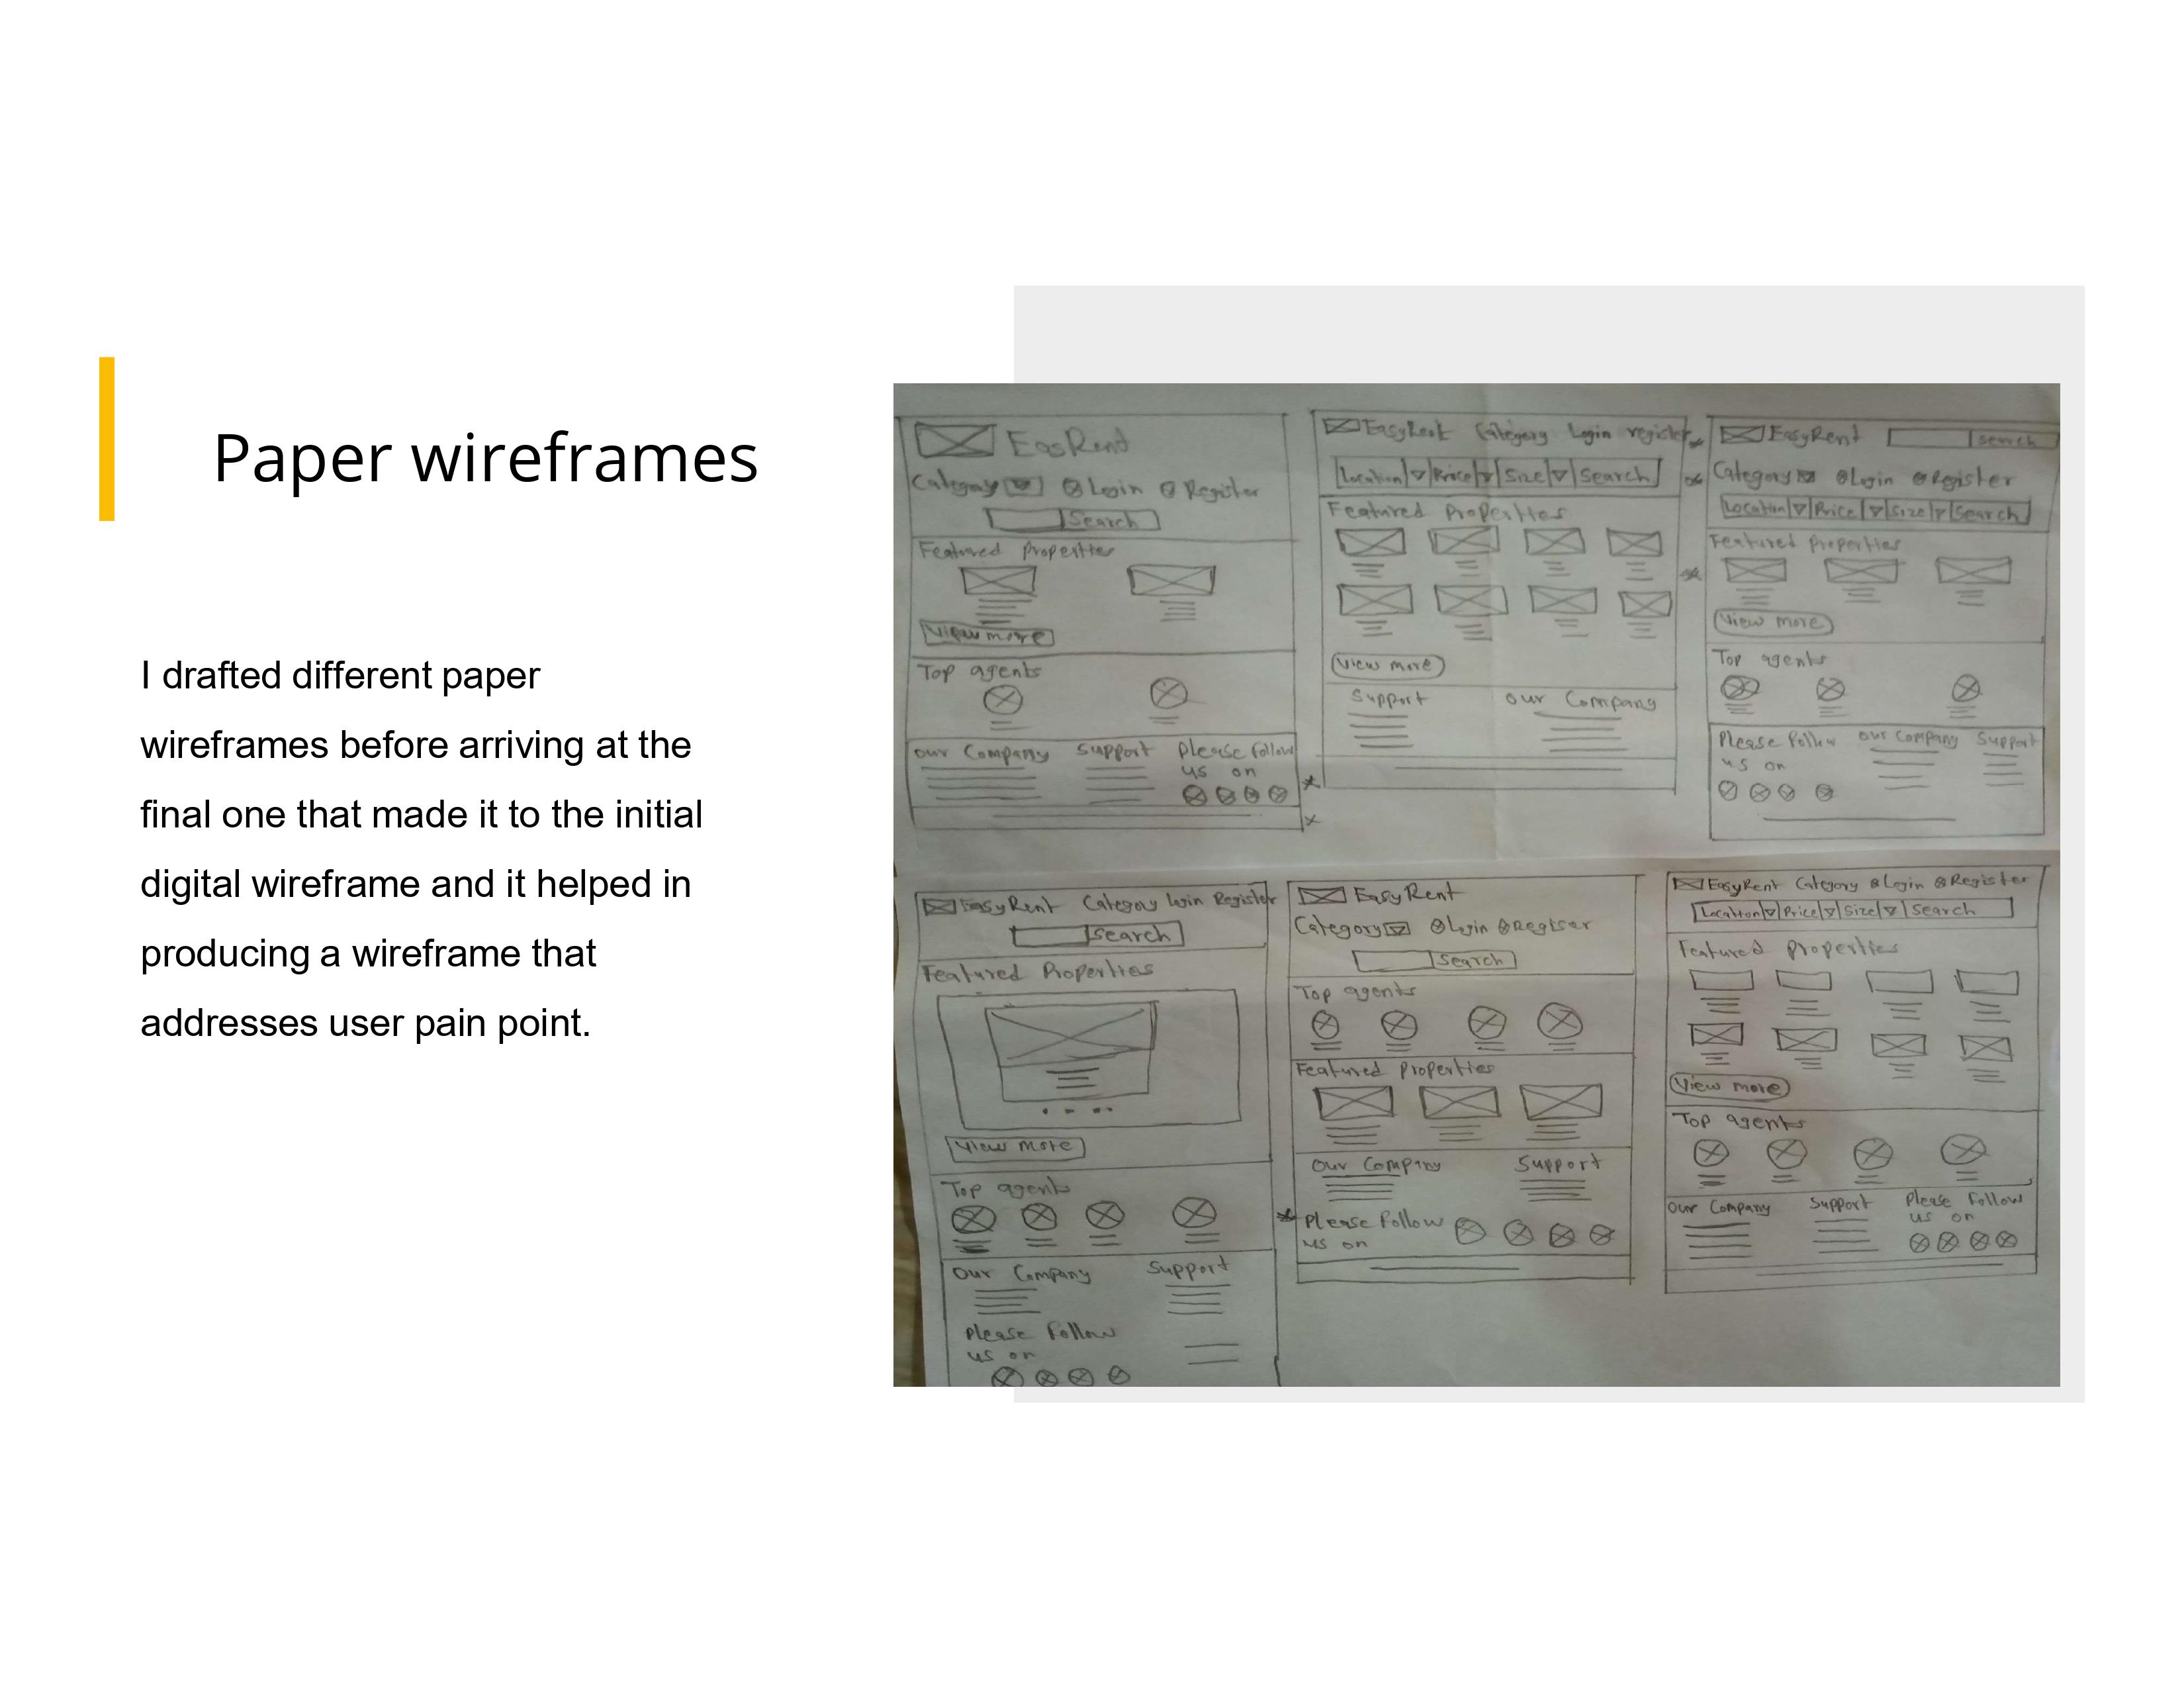 Paper wireframes
I drafted different paper
wireframes before arriving at the
final one that made it to the initial
digital wireframe and it helped in
producing a wireframe that
addresses user pain point.
EasRent
Category Login Register
Search
Featured Properties
View more
Top agents
Our Company Support Please follow
us on
EasyRent Category Login register
Location Price Size Search
Featured Properties
View more
Support Our Company
EasyRent Search
Category Login Register
Location Price Size Search
Featured Properties
View more
Top agents
Please follow Our Company Support
us on
EasyRent Category Login Register
Search
Featured Properties
View more
Top agents
Our Company Support
Please follow
us on
EasyRent
Category Login
Search
Top agents
Featured Properties
Our Company Support
Please follow
us on
EasyRent Category Login Register
Location Price Size Search
Featured Properties
View more
Top agents
Our Company Support Please follow
us on